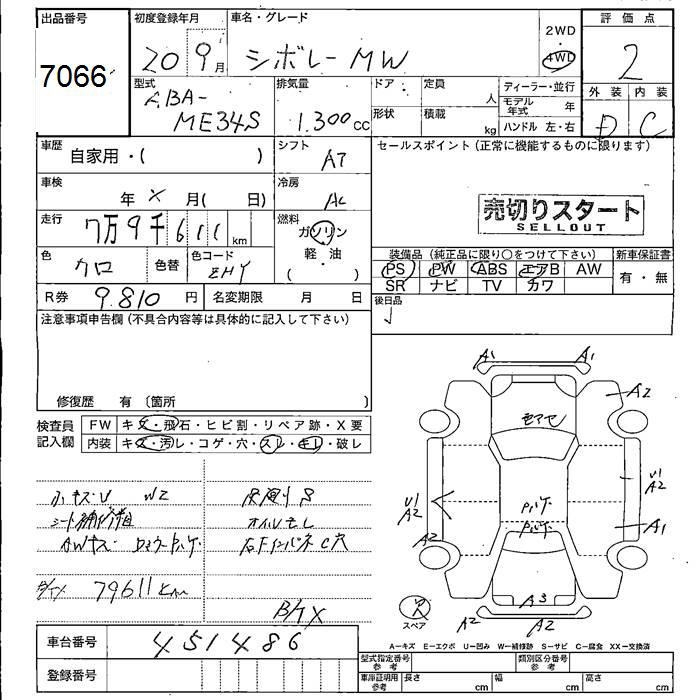 出品番号
7066
初度登録年月
20 9月
車名・グレード
シボレーMW
2WD
4WD
評価点
2
外装 内装
D C
型式
ABA-
ME34S
排気量
1.300cc
ドア
形状
定員
人
積載
kg
ディーラー・並行
モデル年式 年
ハンドル 左・右
車歴
自家用・( )
シフト
AT
セールスポイント(正常に機能するものに限ります)
車検
年 X 月( 日)
冷房
AC
売切りスタート
SELLOUT
走行
7万9千611km
燃料
ガソリン
軽・油
( ・ )
色
クロ
色替
色コード
ZHY
装備品(純正品に限り○をつけて下さい)
新車保証書
PS PW ABS エアB AW
SR ナビ TV カワ
有・無
R券 9.810円
名変期限 月 日
後日品
注意事項申告欄(不具合内容等は具体的に記入して下さい)
修復歴 有 〔箇所 〕
検査員
記入欄
FW キズ・飛石・ヒビ割・リペア跡・X要
内装 キズ・汚レ・コゲ・穴・スレ・キレ・破レ
小キズ・U W2
シート補修
AWキズ
オイルモレ
石Fインパネ C穴
79611km
A1 A1
A2
U1
A2
U1
A2
A2
A1
A3
A2 A2
スペア
車台番号 451486
登録番号
A－キズ E－エクボ U－凹み W－補修跡 S－サビ C－腐食 XX－交換済
型式指定番号
参考
類別区分番号
参考
車庫証明用
参考
長さ cm
幅 cm
高さ cm